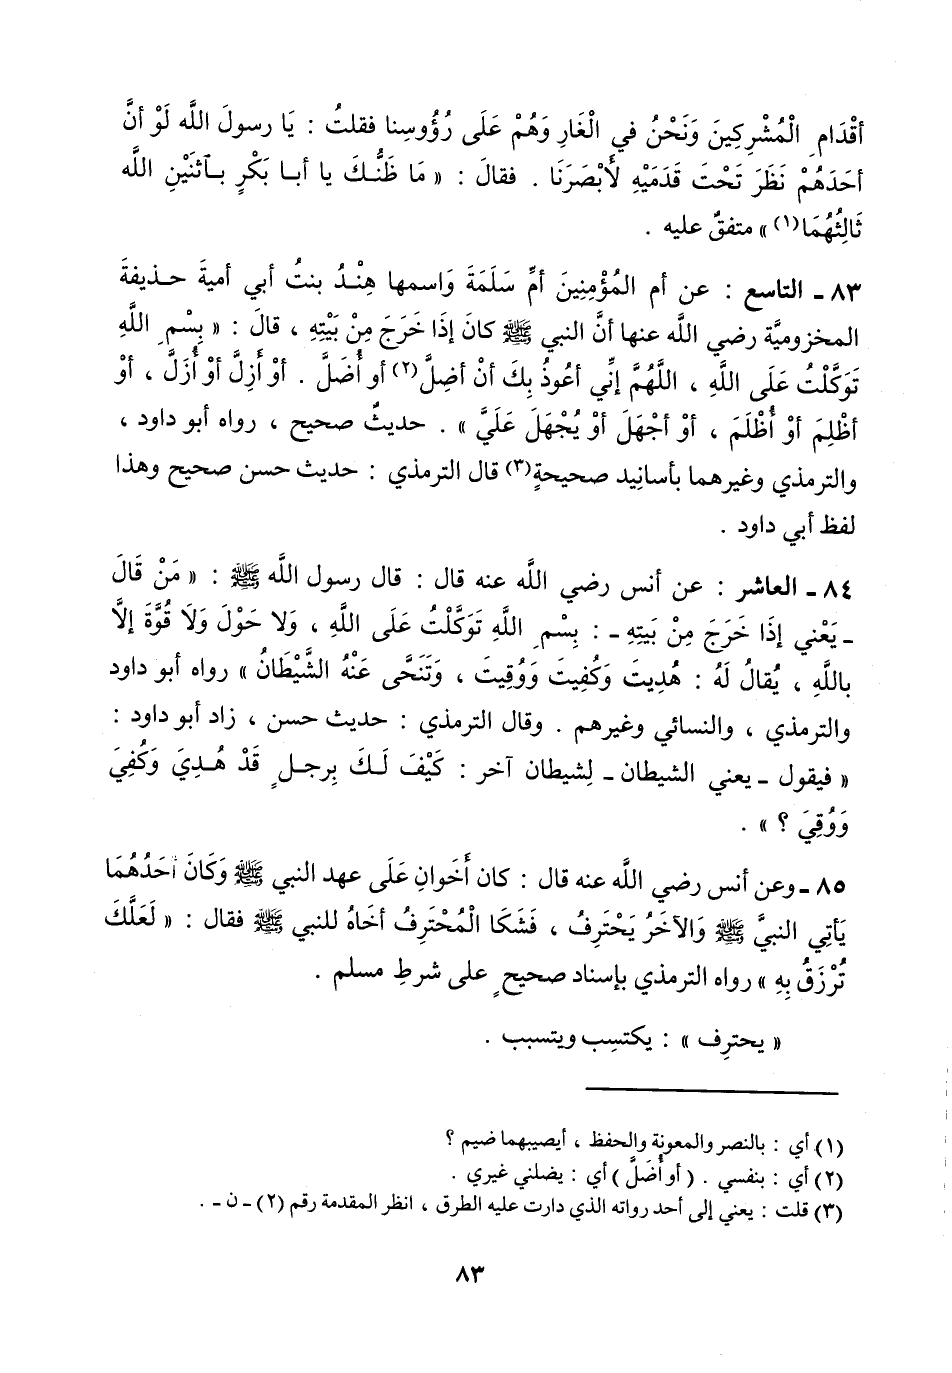 أقْدَامِ الْمُشْرِكِينَ وَنَحْنُ في الْغَارِ وَهُمْ عَلَى رُؤُوسِنا فقلتُ : يَا رسولَ اللَّه لَوْ أنَّ
أحَدَهُمْ نَظَرَ تَحْتَ قَدَمَيْهِ لأَبْصَرَنَا . فقالَ : « مَا ظَنُّـكَ يا أبـا بَكْرٍ بـآثنَيْنِ اللَّه
ثَالِثُهُمَا(١)» متفقٌ عليه .
٨٣ ـ التاسع : عن أم المُؤْمِنِينَ أمِّ سَلَمَةَ وَاسمها هِنْـدُ بنتُ أبي أميةَ حـذيفةَ
المخزوميَّة رضي اللَّه عنها أنَّ النبي ﷺ كانَ إذَا خَرَجَ مِنْ بَيْتِهِ ، قالَ : « بِسْمِ اللَّهِ
تَوَكَّلْتُ عَلَى اللَّهِ ، اللَّهُمَّ إنِّي أعُوذُ بِكَ أنْ أضِلَّ(٢) أو أُضَلَّ . أوْ أَزِلَّ أوْ أُزَلَّ ، أوْ
أظْلِمَ أوْ أُظْلَمَ ، أوْ أجْهَلَ أوْ يُجْهَلَ عَلَيَّ » . حديثٌ صحيح ، رواه أبو داود ،
والترمذي وغيرهما بأسانِيد صحيحةٍ(٣) قال الترمذي : حديث حسن صحيح وهذا
لفظ أبي داود .
٨٤ ـ العاشر : عن أنس رضي اللَّه عنه قال : قال رسول اللَّه ﷺ : « مَنْ قَالَ
ـ يَعْني إذَا خَرَجَ مِنْ بَيتِهِ ـ : بِسْمِ اللَّهِ تَوَكَّلْتُ عَلَى اللَّهِ ، وَلا حَوْلَ وَلَا قُوَّةَ إلاَّ
باللَّهِ ، يُقالُ لَهُ : هُدِيتَ وَكُفِيتَ وَوُقِيتَ ، وَتَنَحَّى عَنْهُ الشَّيْطَانُ » رواه أبو داود
والترمذي ، والنسائي وغيرهم . وقال الترمذي : حديث حسن ، زاد أبو داود :
« فيقول ـ يعني الشيطان ـ لِشيطان آخر : كَيْفَ لَـكَ بِرجـلٍ قَدْ هُـدِيَ وَكُفِيَ
وَوُقِيَ ؟ » .
٨٥ ـ وعن أنس رضي اللَّه عنه قال : كان أَخَوانِ عَلَى عهد النبي ﷺ وَكَانَ أحَدُهُمَا
يَأتِي النبيَّ ﷺ وَالآخَرُ يَحْتَرِفُ ، فَشَكَا الْمُحْتَرِفُ أخَاهُ للنبي ﷺ فقال : « لَعَلَّكَ
تُرْزَقُ بِهِ » رواه الترمذي بإسناد صحيحٍ على شرطِ مسلم .
« يحترِف » : يكتسِب ويتسبب .
(١) أي : بالنصر والمعونة والحفظ ، أيصيبهما ضيم ؟
(٢) أي : بنفسي . ( أو أُضَلَّ ) أي : يضلني غيري .
(٣) قلت : يعني إلى أحد رواته الذي دارت عليه الطرق ، انظر المقدمة رقم (٢) ـ ن ـ .
٨٣